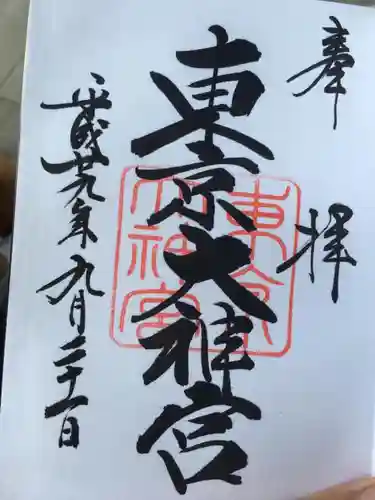 奉拝
東京大神宮
東京大神宮
平成廿九年九月二十一日